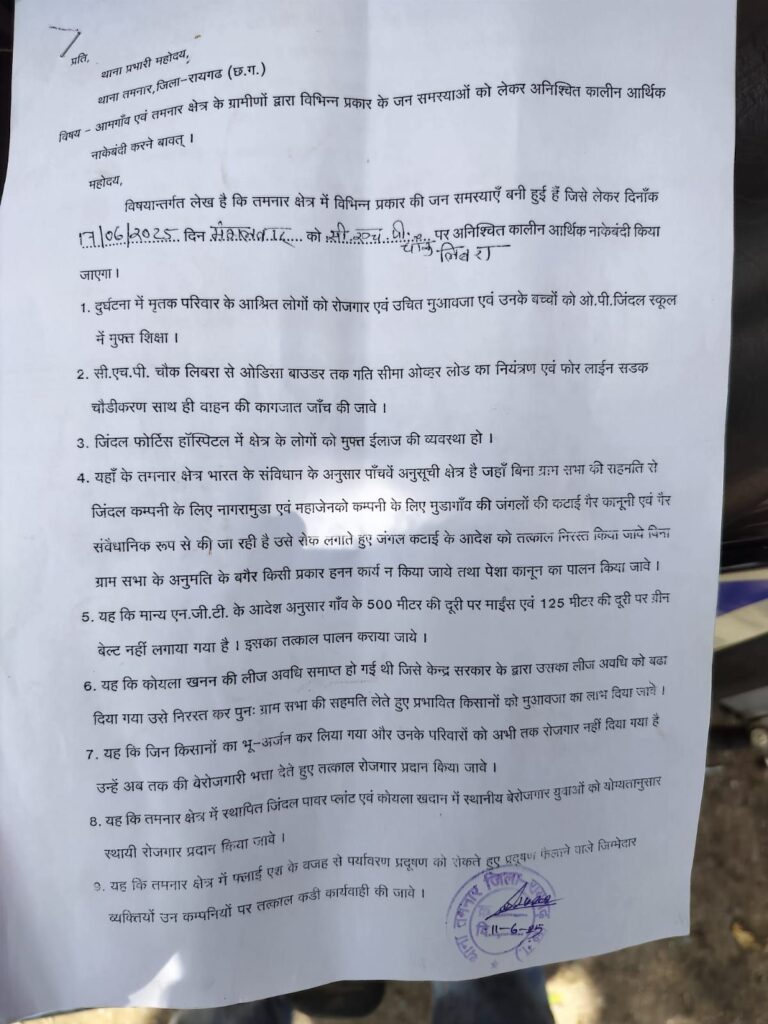 प्रति,
थाना प्रभारी महोदय,
थाना तमनार, जिला-रायगढ (छ.ग.)
विषय - आमगाँव एवं तमनार क्षेत्र के ग्रामीणों द्वारा विभिन्न प्रकार के जन समस्याओं को लेकर अनिश्चित कालीन आर्थिक
नाकेबंदी करने बावत् ।
महोदय,
विषयान्तर्गत लेख है कि तमनार क्षेत्र में विभिन्न प्रकार की जन समस्याएँ बनी हुई हैं जिसे लेकर दिनाँक
17/06/2025 दिन मंगलवार को सी. एच. पी. चौक लिबरा पर अनिश्चित कालीन आर्थिक नाकेबंदी किया
जाएगा ।
1. दुर्घटना में मृतक परिवार के आश्रित लोगों को रोजगार एवं उचित मुआवजा एवं उनके बच्चों को ओ.पी.जिंदल स्कूल
में मुफ्त शिक्षा ।
2. सी.एच.पी. चौक लिबरा से ओडिसा बाउडर तक गति सीमा ओव्हर लोड का नियंत्रण एवं फोर लाईन सडक
चौडीकरण साथ ही वाहन की कागजात जाँच की जावे ।
3. जिंदल फोर्टिस हॉस्पिटल में क्षेत्र के लोगों को मुफ्त ईलाज की व्यवस्था हो ।
4. यहाँ के तमनार क्षेत्र भारत के संविधान के अनुसार पाँचवें अनुसूची क्षेत्र है जहाँ बिना ग्राम सभा की सहमति से
जिंदल कम्पनी के लिए नागरामुडा एवं महाजेनको कम्पनी के लिए मुडागाँव की जंगलों की कटाई गैर कानूनी एवं गैर
संवैधानिक रूप से की जा रही है उसे रोक लगाते हुए जंगल कटाई के आदेश को तत्काल निरस्त किया जाये बिना
ग्राम सभा के अनुमति के बगैर किसी प्रकार हनन कार्य न किया जाये तथा पेशा कानून का पालन किया जावे ।
5. यह कि मान्य एन.जी.टी. के आदेश अनुसार गाँव के 500 मीटर की दूरी पर माईंस एवं 125 मीटर की दूरी पर ग्रीन
बेल्ट नहीं लगाया गया है । इसका तत्काल पालन कराया जाये ।
6. यह कि कोयला खनन की लीज अवधि समाप्त हो गई थी जिसे केन्द्र सरकार के द्वारा उसका लीज अवधि को बढा
दिया गया उसे निरस्त कर पुनः ग्राम सभा की सहमति लेते हुए प्रभावित किसानों को मुआवजा का लाभ दिया जावे ।
7. यह कि जिन किसानों का भू-अर्जन कर लिया गया और उनके परिवारों को अभी तक रोजगार नहीं दिया गया है
उन्हें अब तक की बेरोजगारी भत्ता देते हुए तत्काल रोजगार प्रदान किया जावे ।
8. यह कि तमनार क्षेत्र में स्थापित जिंदल पावर प्लांट एवं कोयला खदान में स्थानीय बेरोजगार युवाओं को योग्यतानुसार
स्थायी रोजगार प्रदान किया जावे ।
9. यह कि तमनार क्षेत्र में फ्लाई एश के वजह से पर्यावरण प्रदूषण को रोकते हुए प्रदूषण फैलाने वाले जिम्मेदार
व्यक्तियों उन कम्पनियों पर तत्काल कडी कार्यवाही की जावे ।
थाना तमनार जिला-
11-6-25